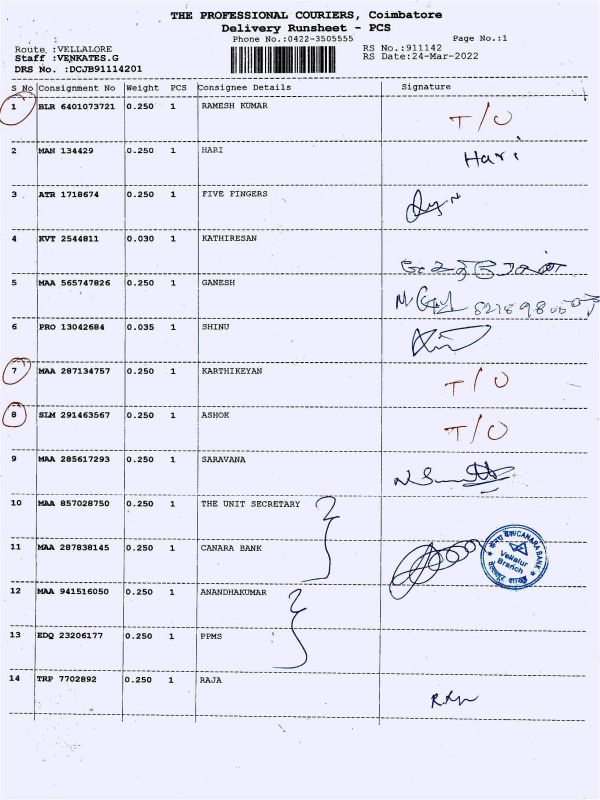 THE PROFESSIONAL COURIERS, Coimbatore
Delivery Runsheet - PCS
Phone No.:0422-3505555
Page No.:1
Route :VELLALORE
RS No.:911142
Staff :VENKATES.G
RS Date:24-Mar-2022
DRS No. :DCJB91114201
S No Consignment No Weight PCS Consignee Details Signature
1 BLR 6401073721 0.250 1 RAMESH KUMAR T/O
2 MAN 134429 0.250 1 HARI Hari
3 ATR 1718674 0.250 1 FIVE FINGERS
4 KVT 2544811 0.030 1 KATHIRESAN
5 MAA 565747826 0.250 1 GANESH
6 PRO 13042684 0.035 1 SHINU
7 MAA 287134757 0.250 1 KARTHIKEYAN T/O
8 SLM 291463567 0.250 1 ASHOK T/O
9 MAA 285617293 0.250 1 SARAVANA
10 MAA 857028750 0.250 1 THE UNIT SECRETARY
11 MAA 287838145 0.250 1 CANARA BANK
CANARA BANK
Vellalur
Branch
12 MAA 941516050 0.250 1 ANANDHAKUMAR
13 EDQ 23206177 0.250 1 PPMS
14 TRP 7702892 0.250 1 RAJA